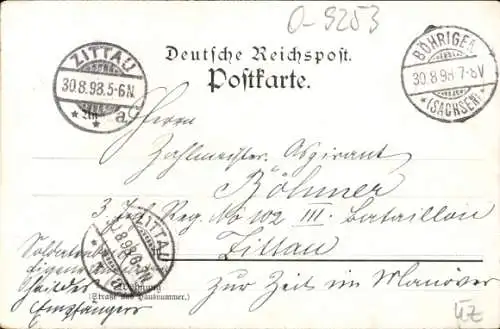 O-9253
Deutsche Reichspost.
Postkarte.
ZITTAU
30.8.98.5-6N.
* An * a
BÖHRIGEN
30.8.98 7-8V
*(SACHSEN)*
Herrn
Zahlmeister-Aspirant
Böhmer
3. Inf. Reg. No 102 III. Bataillon
Zittau
zur Zeit im Manöver
ZITTAU
.8.98
Soldatenbrief
Eigene
des
Empfängers
Wohnung
(Straße und Hausnummer.)